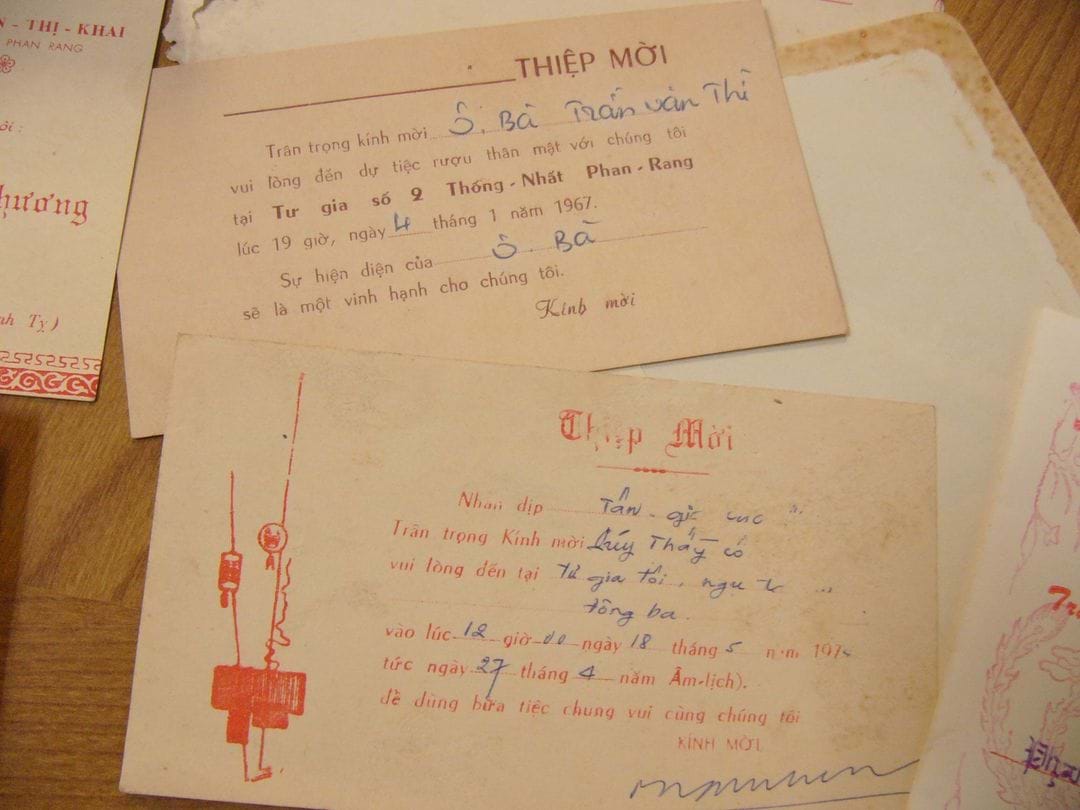 THỊ - KHAI
PHAN RANG
hương
THIỆP MỜI
Trân trọng kính mời Ô. Bà Trần văn Thi
vui lòng đến dự tiệc rượu thân mật với chúng tôi
tại Tư gia số 2 Thống - Nhất Phan - Rang
lúc 19 giờ, ngày 4 tháng 1 năm 1967.
Sự hiện diện của Ô. Bà
sẽ là một vinh hạnh cho chúng tôi.
Kính mời
Thiệp Mời
Nhân dịp Tân gia
Trân trọng Kính mời Quý Thầy cô
vui lòng đến tại Tư gia tôi, ngụ
tông ba.
vào lúc 12 giờ 00 ngày 18 tháng 5 năm 197
tức ngày 27 tháng 4 năm Âm-lịch).
để dùng bữa tiệc chung vui cùng chúng tôi
KÍNH MỜI,